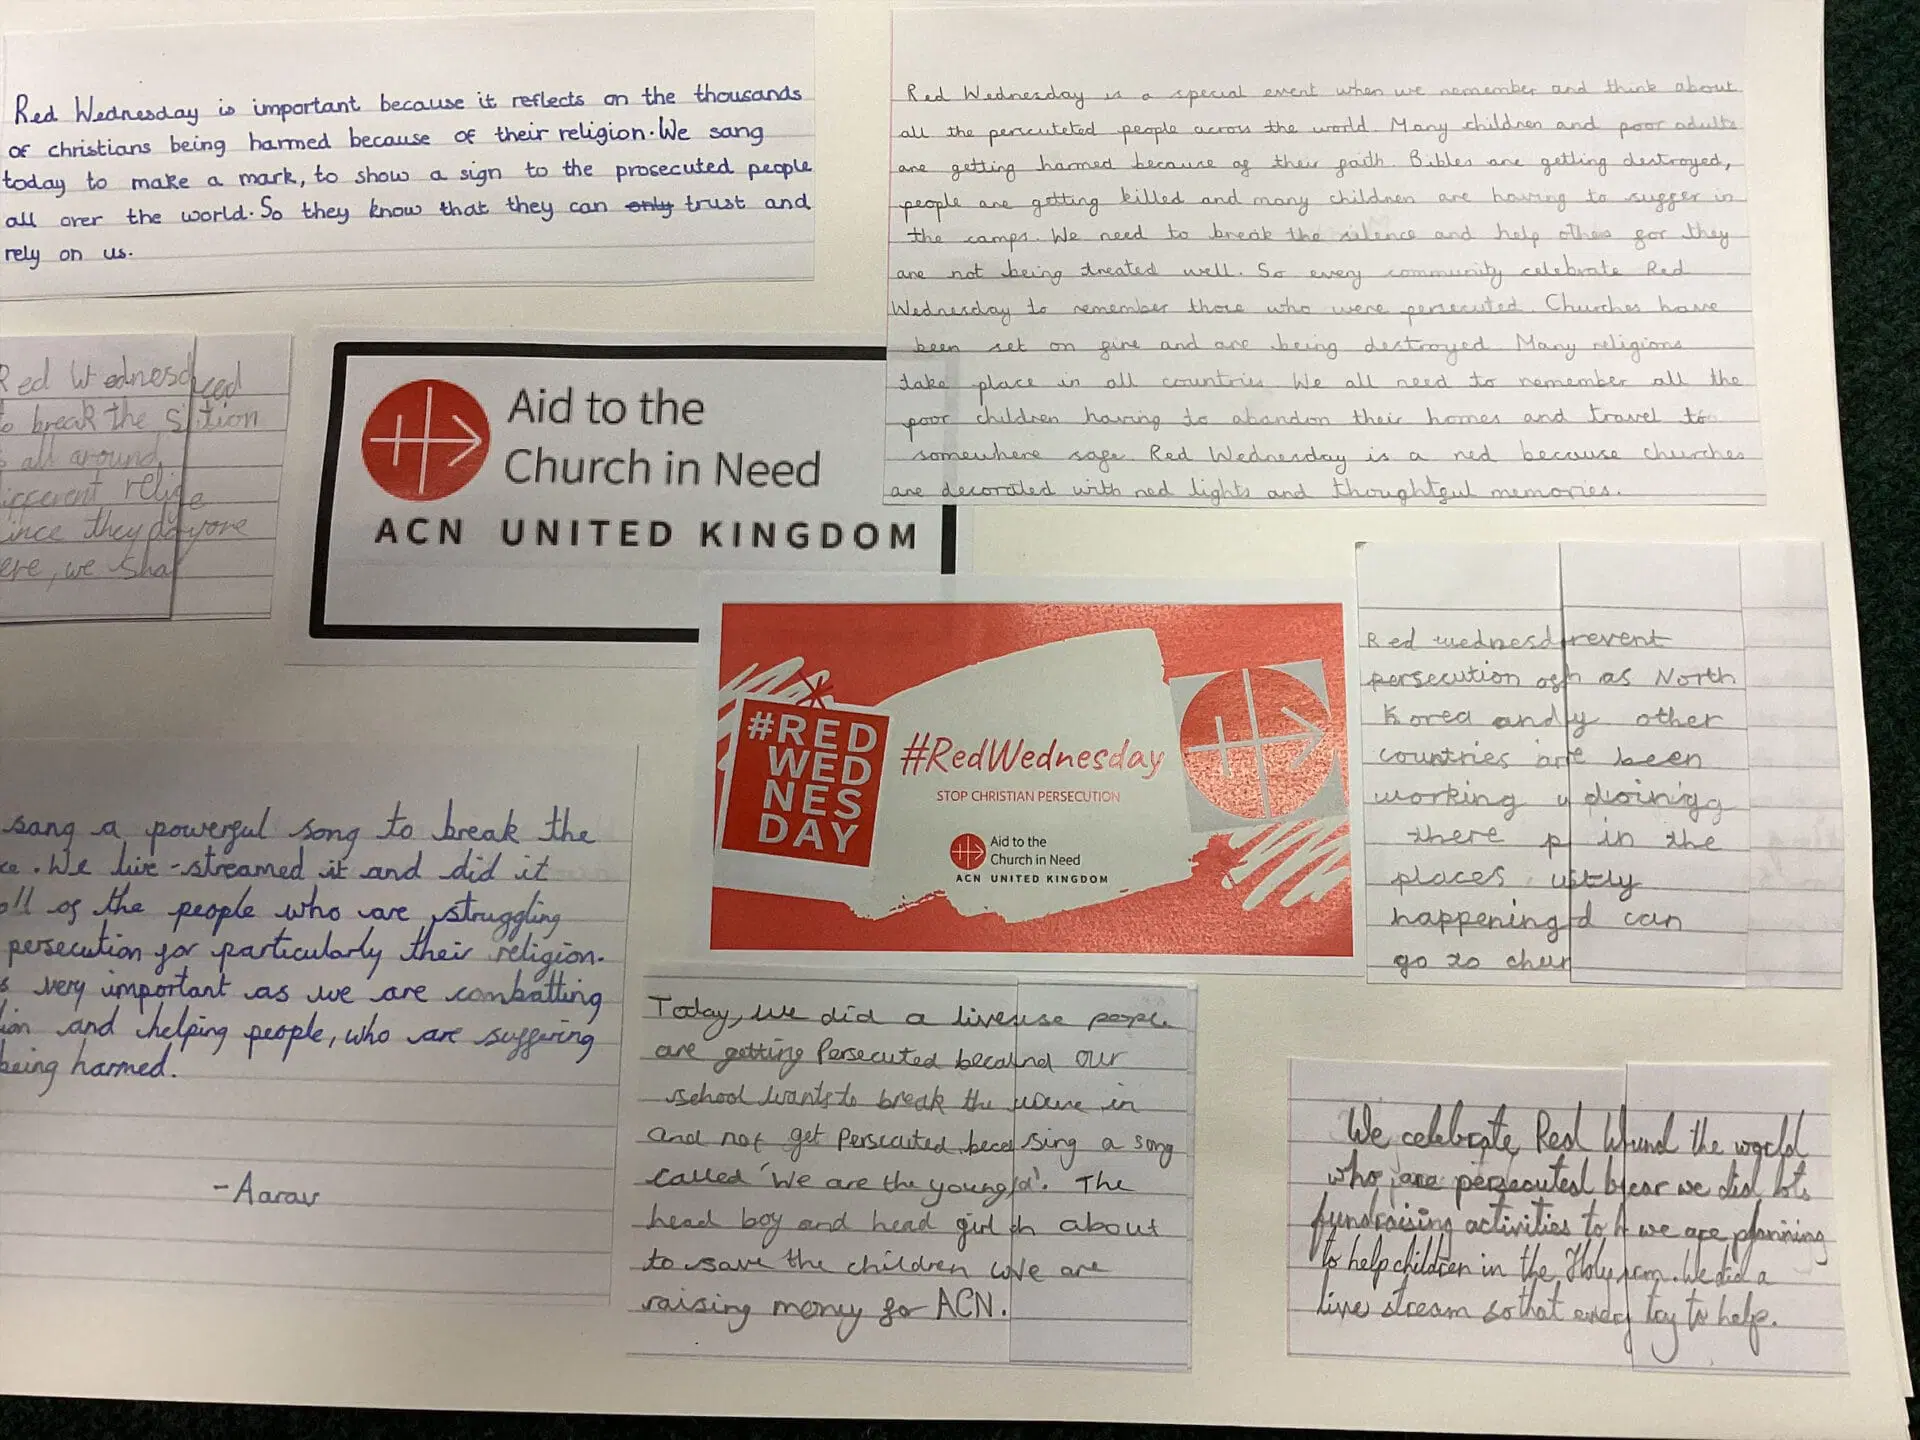 Red Wednesday is important because it reflects on the thousands
of christians being harmed because of their religion. We sang
today to make a mark, to show a sign to the prosecuted people
all over the world. So they know that they can only trust and
rely on us.
Red Wednesday is a special event when we remember and think about
all the percuteted people across the world. Many children and poor adults
are getting harmed because of their faith. Bibles are getting destroyed,
people are getting killed and many children are having to suffer in
the camps. We need to break the silence and help others for they
are not being treated well. So every community celebrate Red
Wednesday to remember those who were persecuted. Churches have
been set on fire and are being destroyed. Many religions
take place in all countries. We all need to remember all the
poor children having to abandon their homes and travel to
somewhere safe. Red Wednesday is a red because churches
are decorated with red lights and thoughtful memories.
Red Wednesd
break the
all around
ince they
ere, we sha
Aid to the
Church in Need
ACN UNITED KINGDOM
#RED
WED
NES
DAY
#RedWednesday
STOP CHRISTIAN PERSECUTION
Aid to the
Church in Need
ACN UNITED KINGDOM
Red wednesd revent
persecution as North
Korea and other
countries been
working
there in the
places
happening can
go to chur
sang a powerful song to break the
ce. We live-streamed it and did it
all of the people who are struggling
persecution for particularly their religion.
s very important as we are combatting
ion and helping people, who are suffering
being harmed.
-Aarav
Today, we did a live use people
are getting Persecuted beca nd our
school wants to break the in
and not get Persecuted beca sing a song
called 'We are the young. The
head boy and head girl about
to save the children We are
raising money for ACN.
We celebrate Red W und the world
who are persecuted b ear we did lots
fundraising activities to we are planning
to help children in the Holy We did a
live stream so that every try to help.